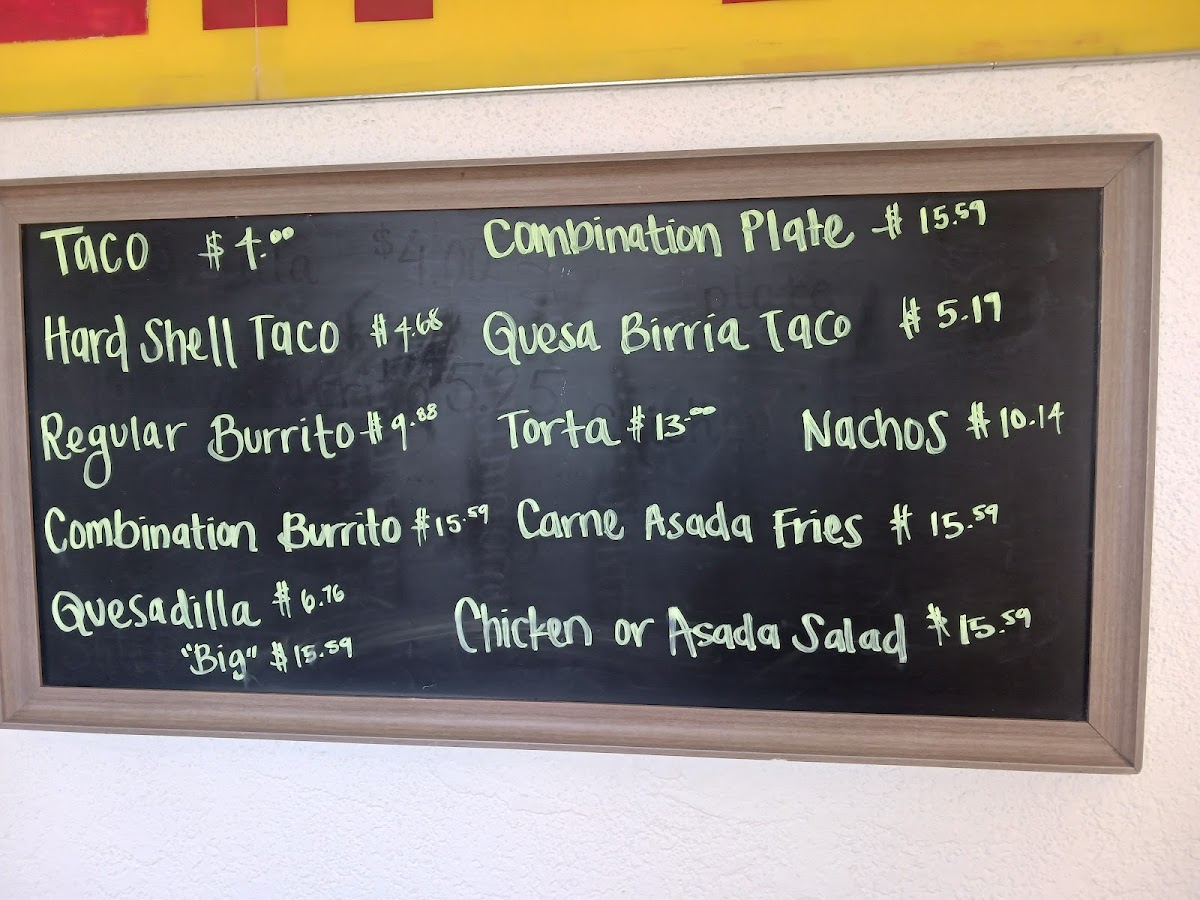 Taco $4.00
Hard Shell Taco $4.68
Regular Burrito $9.88
Combination Burrito $15.59
Quesadilla $6.76
"Big" $15.59
Combination Plate $15.59
Quesa Birria Taco $5.19
Torta $13.00 Nachos $10.14
Carne Asada Fries $15.59
Chicken or Asada Salad $15.59